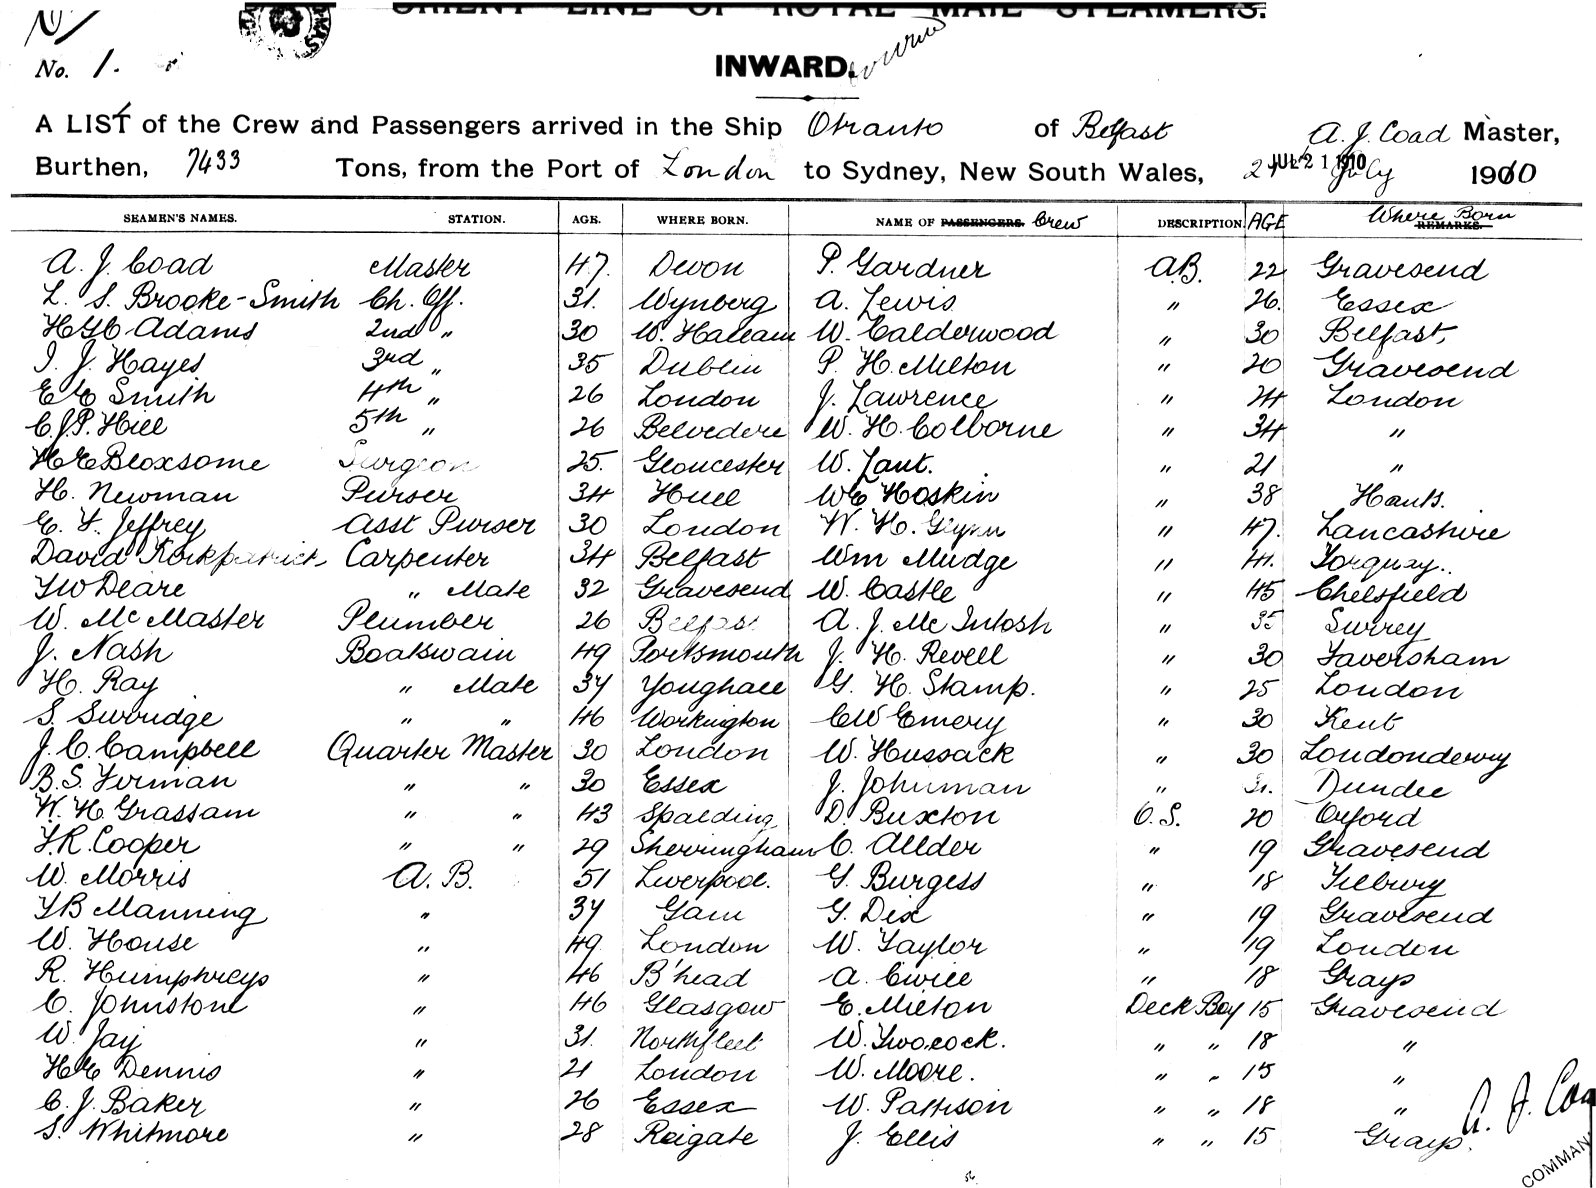 ORIENT LINE OF ROYAL MAIL STEAMERS.
No. 1.
INWARD.
A LIST of the Crew and Passengers arrived in the Ship Otranto of Belfast A. J. Coad Master,
Burthen, 7433 Tons, from the Port of London to Sydney, New South Wales, 21 JUL 21 1910 July 1910
SEAMEN'S NAMES. STATION. AGE. WHERE BORN. NAME OF PASSENGERS. Crew DESCRIPTION. AGE Where Born REMARKS.
A. J. Coad Master 47. Devon P. Gardner A.B. 22 Gravesend
L. S. Brooke-Smith Ch. Off. 31. Wynberg A. Lewis " 26. Essex
H G C Adams 2nd " 30 W. Hallam W. Calderwood " 30 Belfast,
I. J. Hayes 3rd " 35 Dublin P. H. Milton " 20 Gravesend
E E Smith 4th " 26 London J. Lawrence " 24 London
C.J.P. Hill 5th " 26 Belvedere W. H. Colborne " 34 "
H E Bloxsome Surgeon 25. Gloucester W. Lant. " 21 "
H. Newman Purser 34 Hull W E Hoskin " 38 Hants.
E. F. Jeffrey Asst Purser 30 London W. H. Glynn " 47. Lancashire
David Kirkpatrick Carpenter 34 Belfast Wm Mudge " 41. Torquay..
F W Deare " Mate 32 Gravesend W. Castle " 45 Chelsfield
W. Mc Master Plumber 26 Belfast A. J. Mc Intosh " 35 Surrey
J. Nash Boatswain 49 Portsmouth J. H. Revell " 30 Faversham
H. Ray " Mate 37 Youghall G. H. Stamp. " 25 London
S. Swridge " " 46 Workington C W Emery " 30 Kent
J. C. Campbell Quarter Master 30 London W. Hussack " 30 Londonderry
B. S. Firman " " 30 Essex J. Johnman " 31. Dundee
W. H. Grassam " " 43 Spalding D. Buxton O.S. 20 Orford
F. R. Cooper " " 29 Sherringham C. Allder " 19 Gravesend
W. Morris A. B. 51 Liverpool. G. Burgess " 18 Tilbury
F B Manning " 37 Gam G. Dix " 19 Gravesend
W. House " 49. London W. Taylor " 19 London
R. Humphreys " 46 B'head A. Civill " 18 Grays
C. Johnstone " 46 Glasgow E. Milton Deck Boy 15 Gravesend
W. Jay " 31. Northfleet W. Twocock. " " 18 "
H E Dennis " 21 London W. Moore. " " 15 "
C. J. Baker " 26 Essex W. Pattison " " 18 "
S. Whitmore " 28 Reigate J. Ellis " " 15 Grays.
A. J. Coa
COMMAN